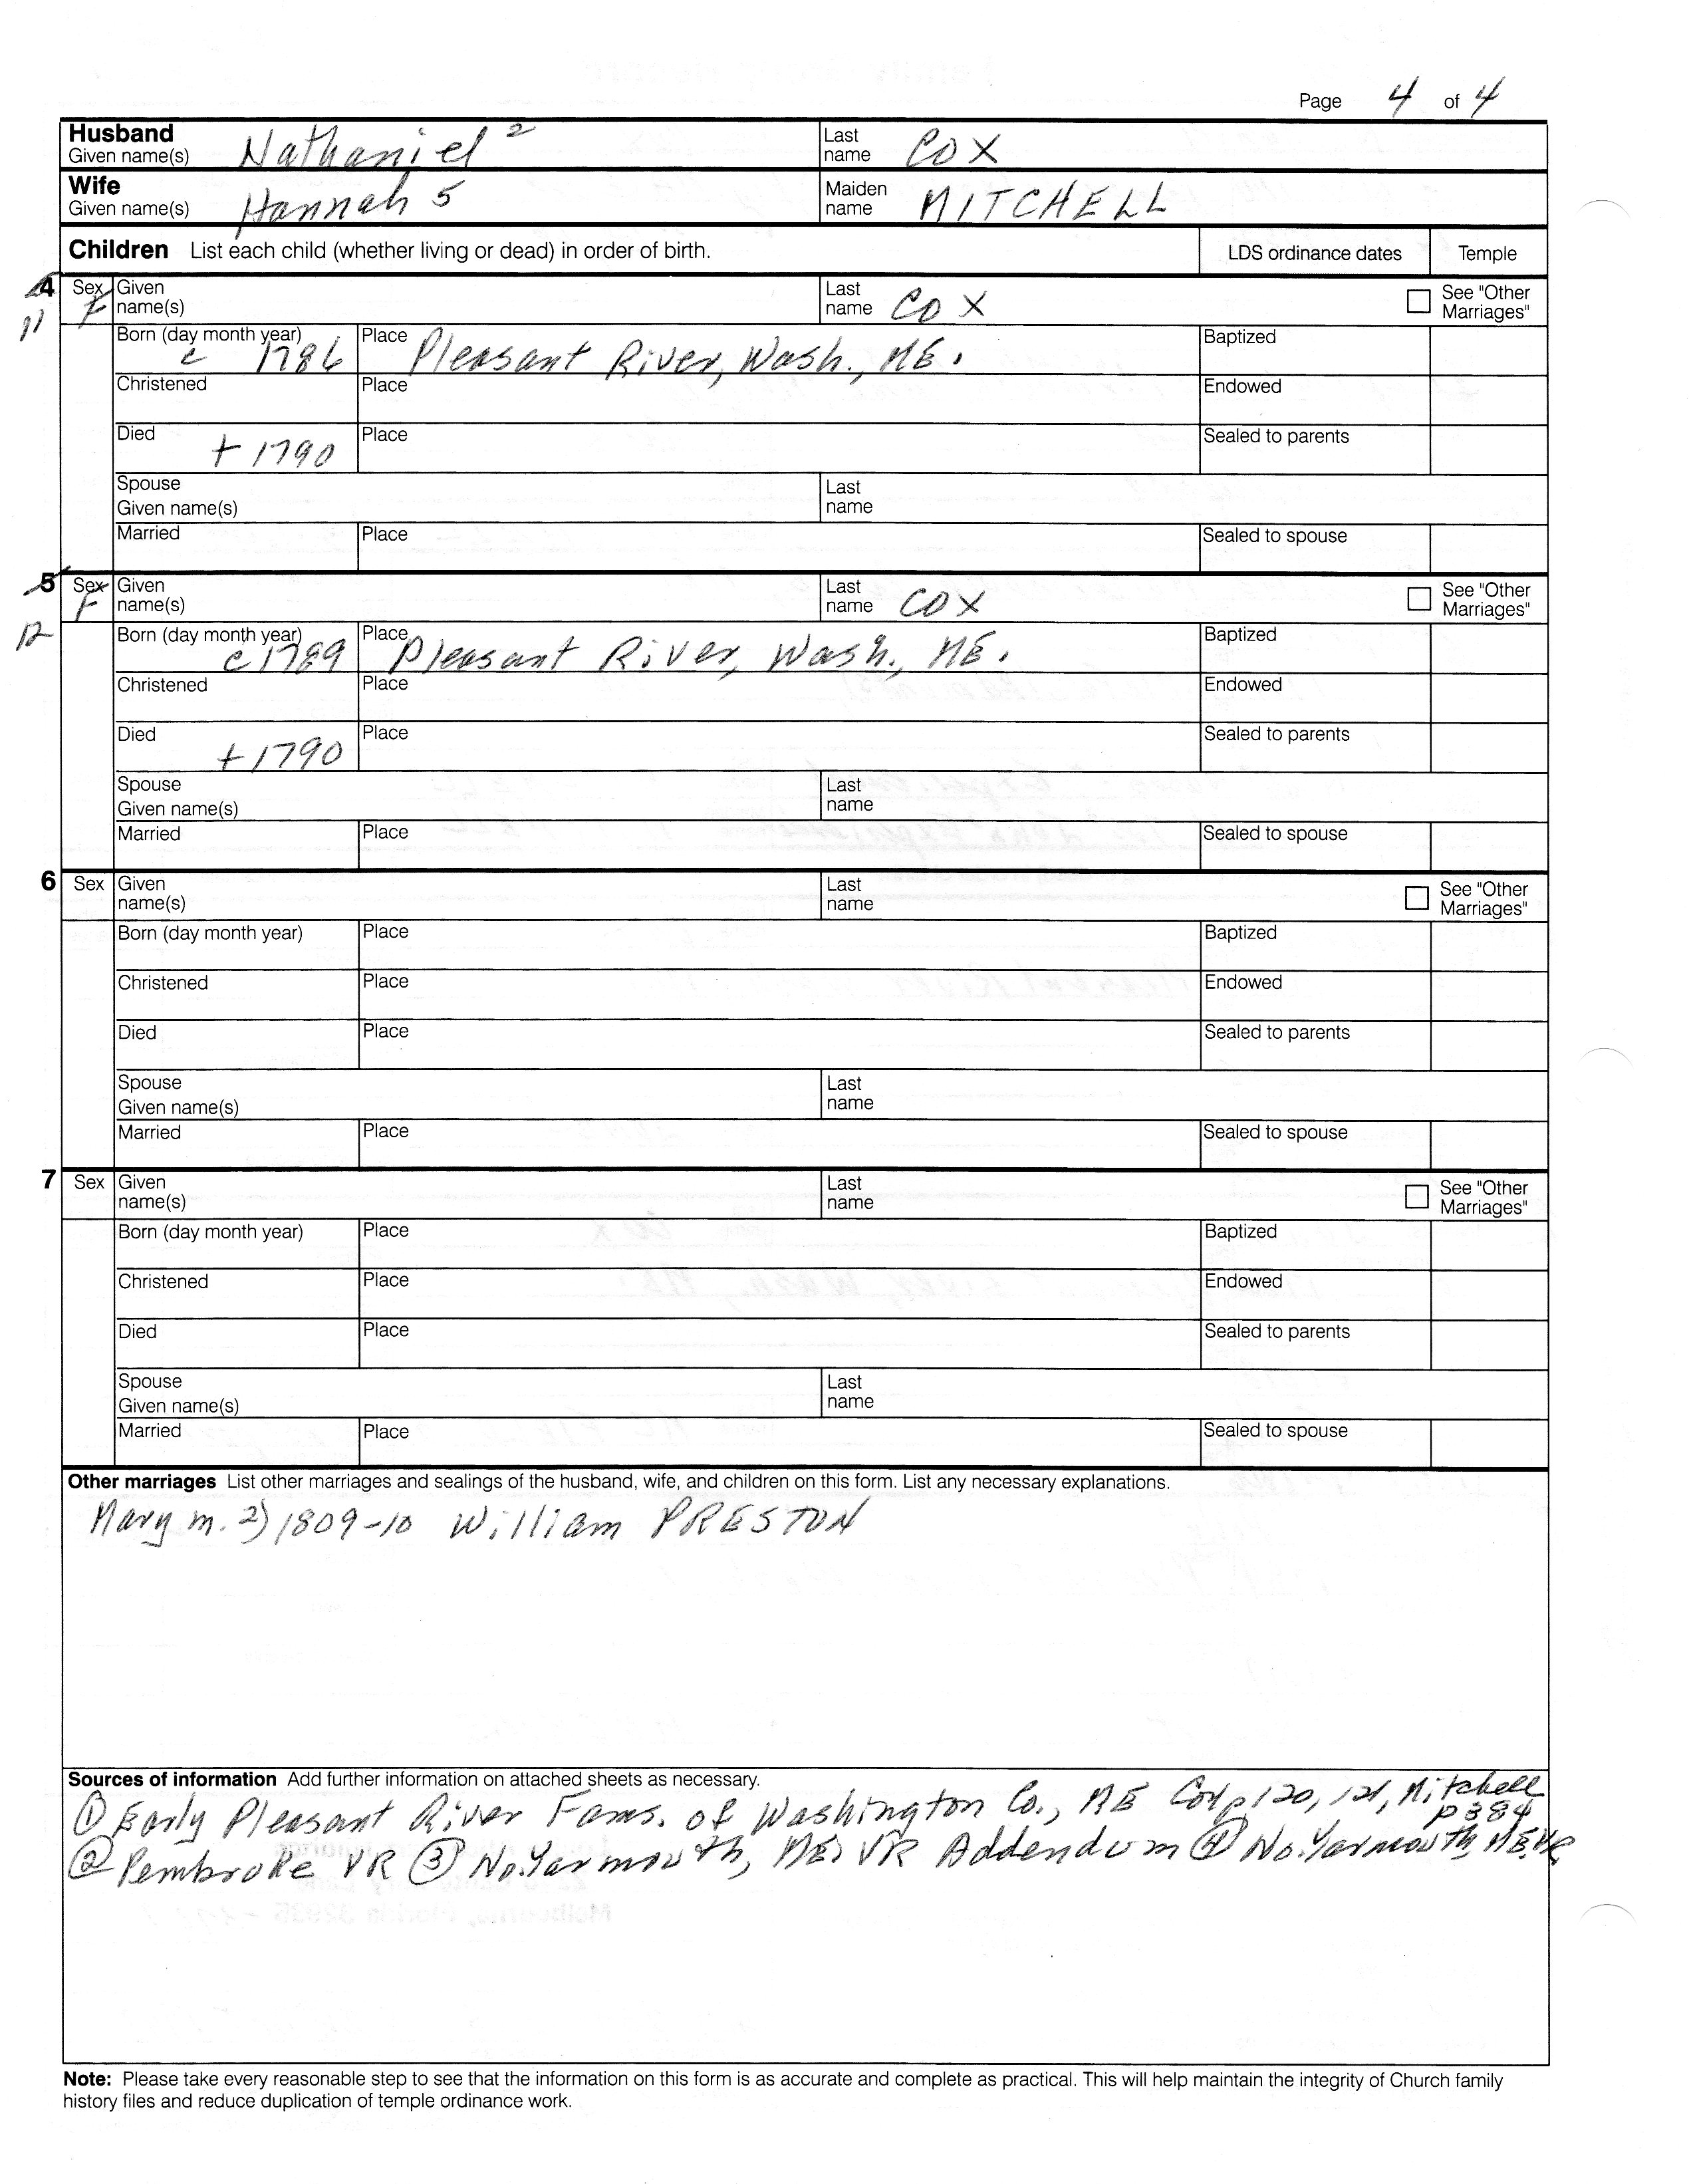 Page 4 of 4
Husband Given name(s) Nathaniel 2 Last name COX
Wife Given name(s) Hannah 5 Maiden name MITCHELL
Children List each child (whether living or dead) in order of birth. LDS ordinance dates Temple
4 11 Sex F Given name(s) Last name COX See "Other Marriages"
Born (day month year) c 1786 Place Pleasant River, Wash., ME. Baptized
Christened Place Endowed
Died + 1790 Place Sealed to parents
Spouse Given name(s) Last name
Married Place Sealed to spouse
5 12 Sex F Given name(s) Last name COX See "Other Marriages"
Born (day month year) c 1789 Place Pleasant River, Wash., ME. Baptized
Christened Place Endowed
Died + 1790 Place Sealed to parents
Spouse Given name(s) Last name
Married Place Sealed to spouse
6 Sex Given name(s) Last name See "Other Marriages"
Born (day month year) Place Baptized
Christened Place Endowed
Died Place Sealed to parents
Spouse Given name(s) Last name
Married Place Sealed to spouse
7 Sex Given name(s) Last name See "Other Marriages"
Born (day month year) Place Baptized
Christened Place Endowed
Died Place Sealed to parents
Spouse Given name(s) Last name
Married Place Sealed to spouse
Other marriages List other marriages and sealings of the husband, wife, and children on this form. List any necessary explanations.
Mary m. 2) 1809-10 William PRESTON
Sources of information Add further information on attached sheets as necessary.
① Early Pleasant River Fams. of Washington Co., ME Cox p 120, 121, Mitchell p 384
② Pembroke VR ③ No. Yarmouth, ME, VR Addendum ④ No. Yarmouth, ME, VR
Note: Please take every reasonable step to see that the information on this form is as accurate and complete as practical. This will help maintain the integrity of Church family
history files and reduce duplication of temple ordinance work.